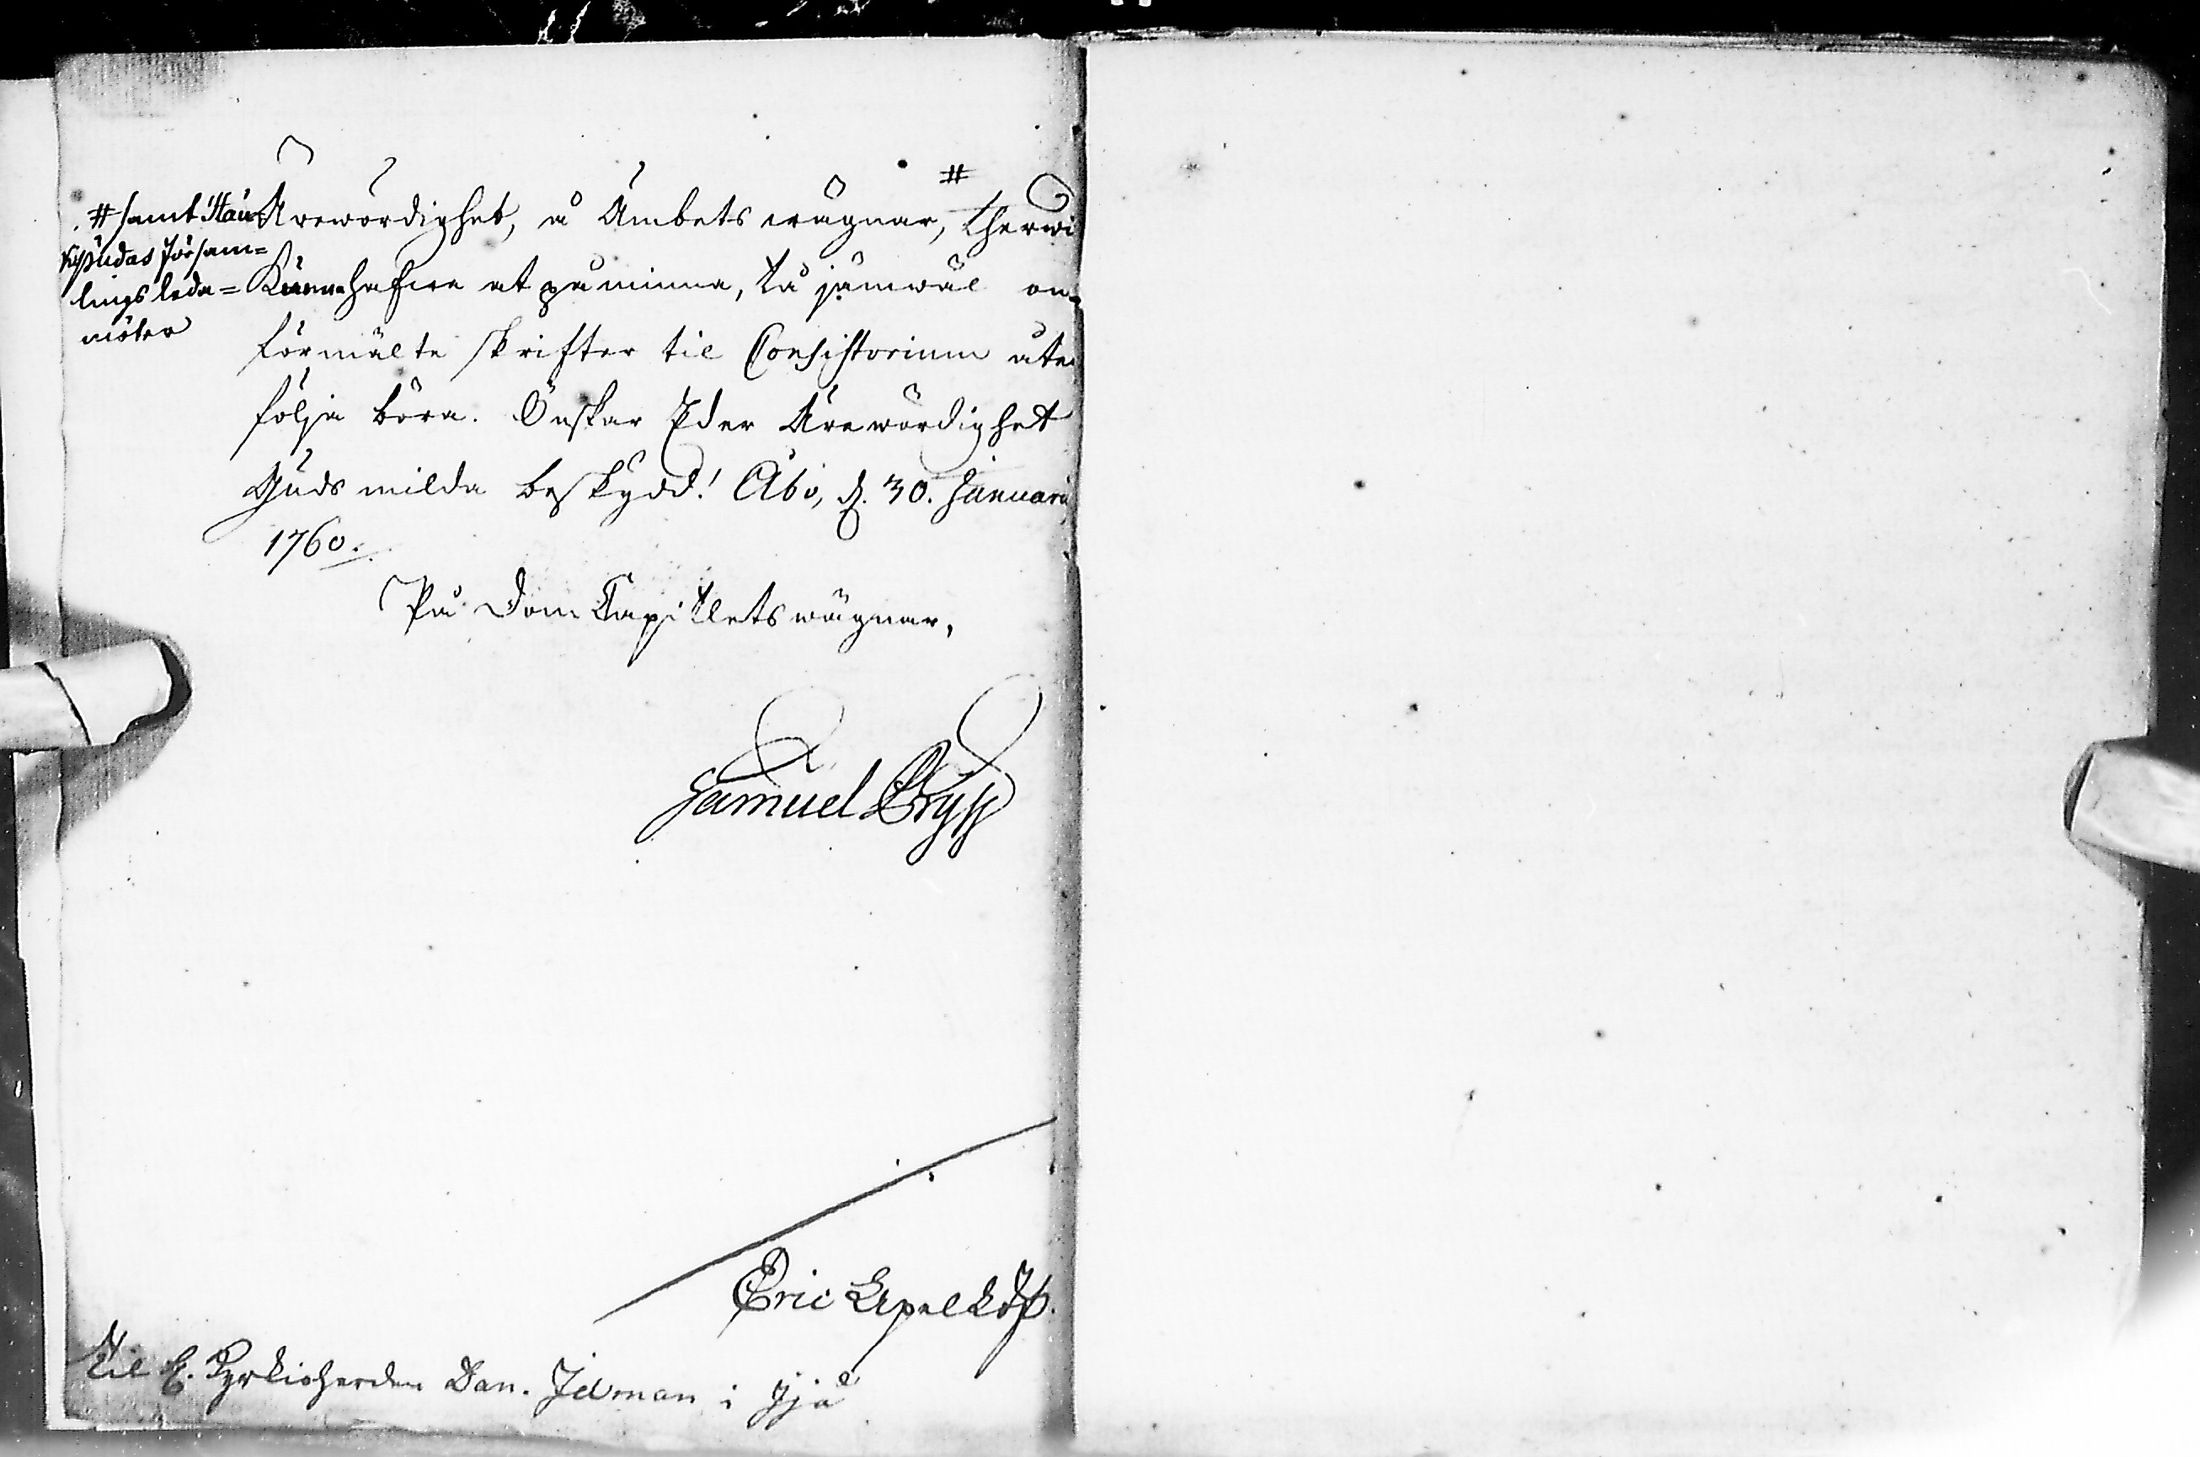 # samt Hau
kipudas församlings leda=
möter
Ärewördighet, å Ämbets wägnar, # therwi
hafwa at påminna, tå jämwäl on=
förmälte skrifter til Consistorium åte
följa böra. Önskar Eder Ärewördighet
Guds milda beskydd! Åbo, d. 30. Januarii
1760.
På Dom Capitlets wägnar,
Samuel Pryss
Eric Apelköhl.
Til H. Kyrkioherden Dan. Idman i Ijå